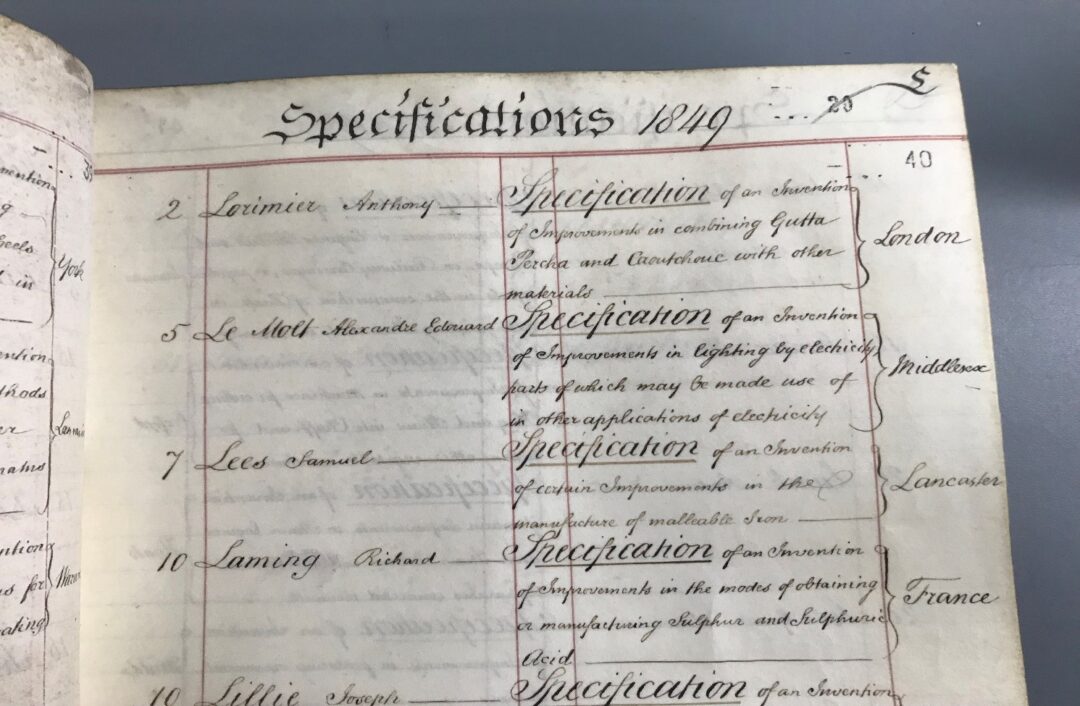 Specifications 1849 ... 20 L
40
2 Lorimier Anthony Specification of an Invention
of Improvements in combining Gutta London
Percha and Caoutchouc with other
materials
5 Le Molt Alexandre Edouard Specification of an Invention
of Improvements in lighting by electricity
parts of which may be made use of Middlesex
in other applications of electricity
7 Lees Samuel Specification of an Invention
of certain Improvements in the Lancaster
manufacture of malleable Iron
10 Laming Richard Specification of an Invention
of Improvements in the modes of obtaining France
or manufacturing Sulphur and Sulphuric
Acid
10 Lillie Joseph Specification of an Invention
York